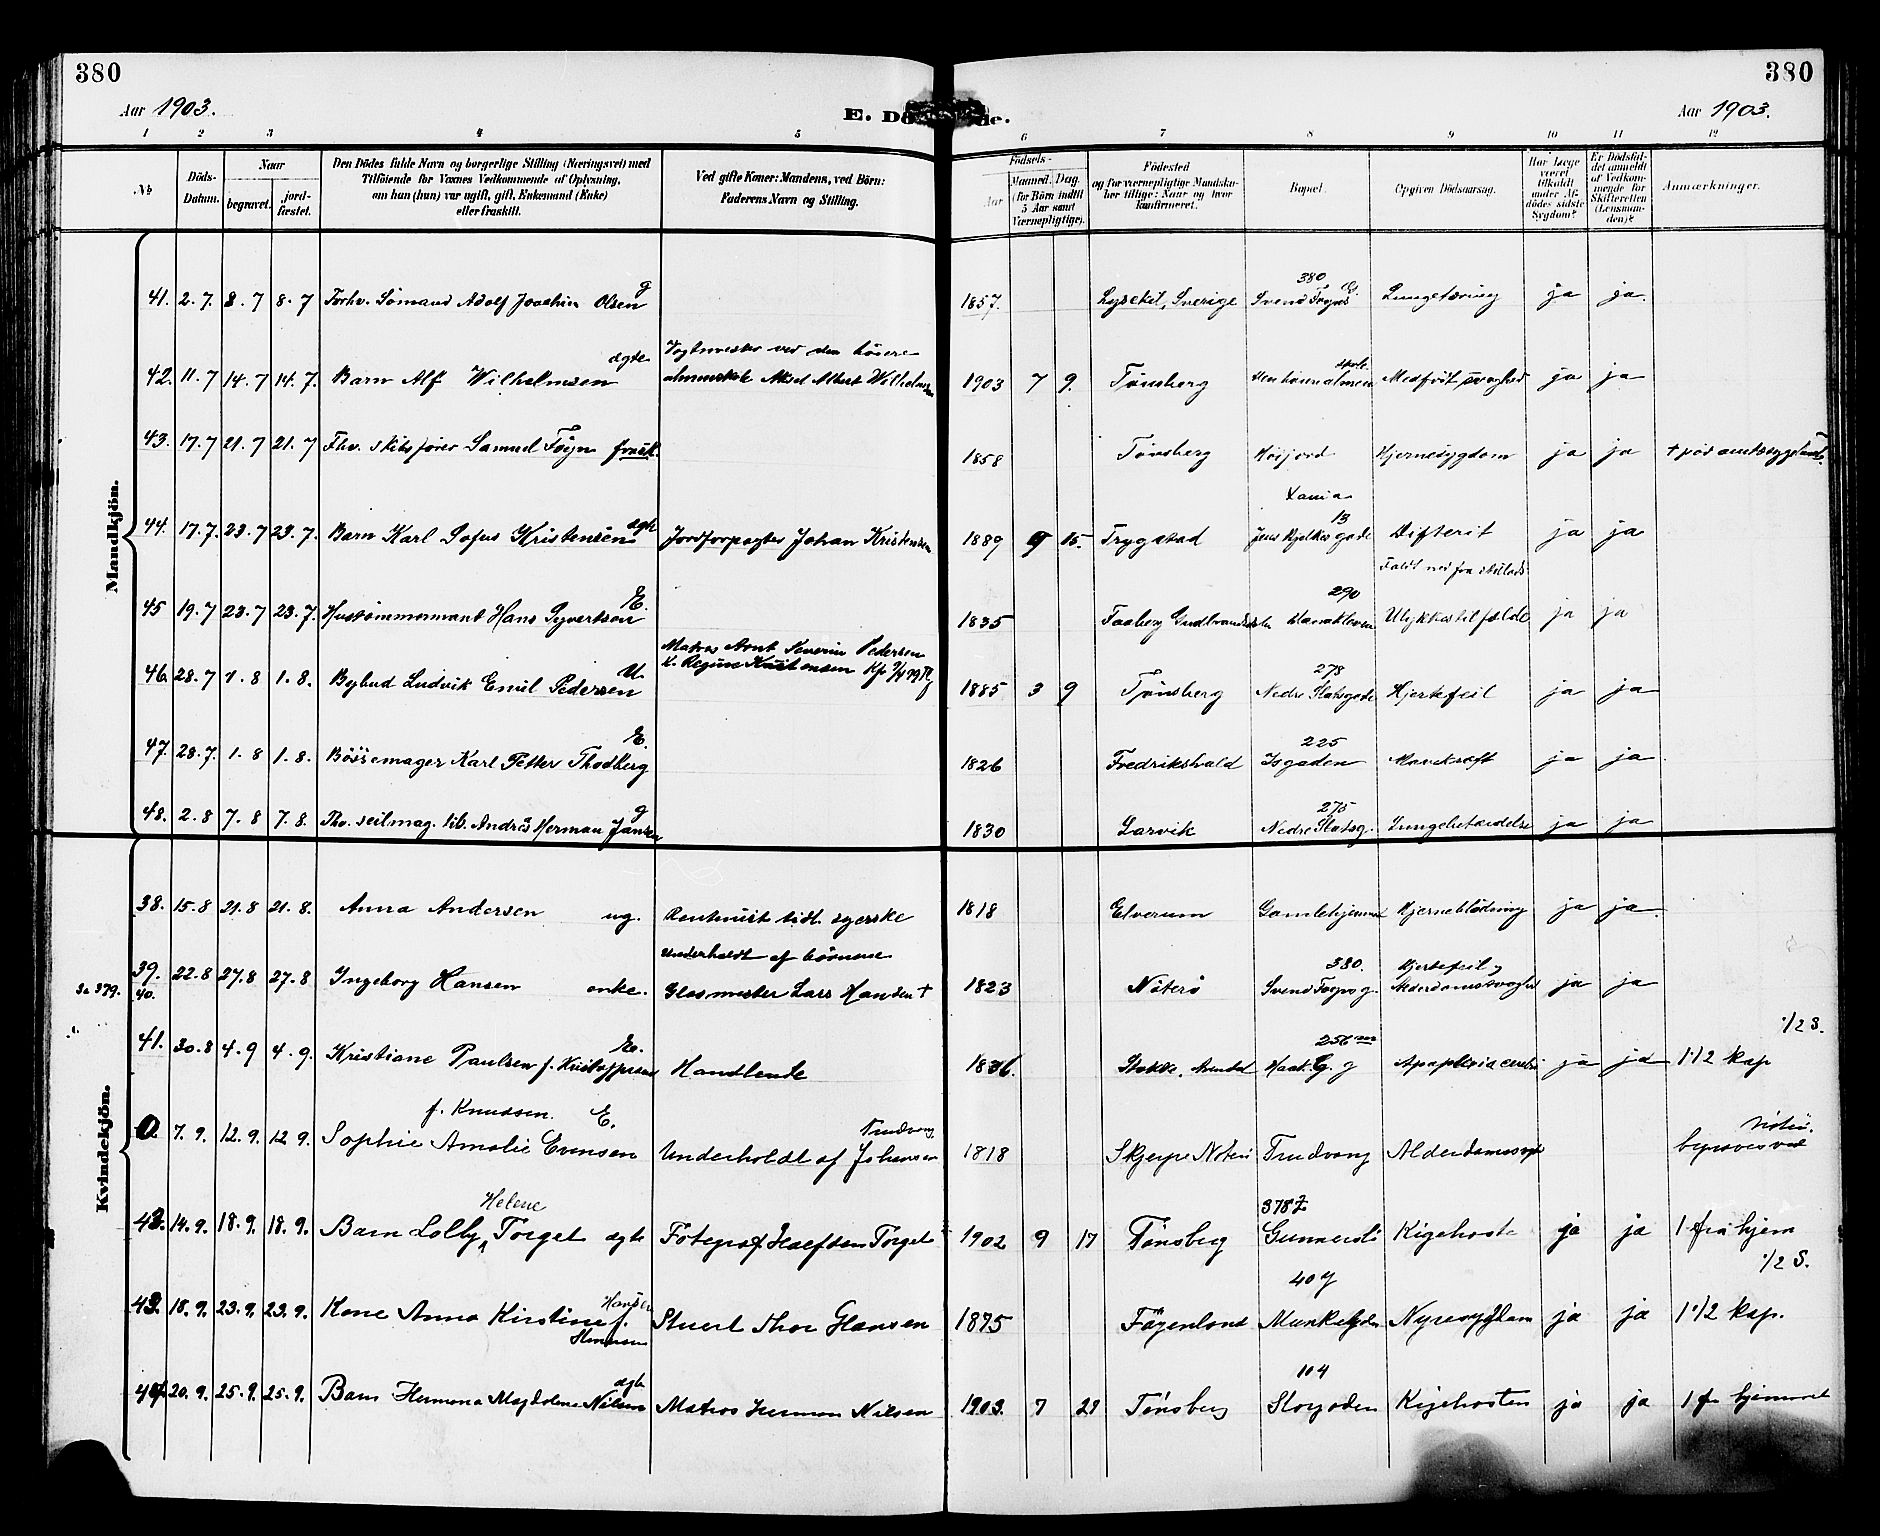 380
380
Aar 1903.
E. Dö de.
Aar 1903.
1 2 3 4 5 6 7 8 9 10 11 12
No
Döds-Datum.
Naar
begravet.
jord-fæstet.
Den Dödes fulde Navn og borgerlige Stilling (Næringsvei) med
Tilföiende for Voxnes Vedkommende af Oplysning,
om han (hun) var ugift, gift, Enkemand (Enke)
eller fraskilt.
Ved gifte Koner: Mandens, ved Börn:
Faderens Navn og Stilling.
Födsels-
Aar
Maaned. Dag.
(for Börn indtil
5 Aar samt
Værnepligtige).
Födested
og for værnepligtige Mandska-
ber tillige: Naar og hvor
konfirmeret.
Bopæl.
Opgiven Dödsaarsag.
Har Læge
været
tilkaldt
under Af-
dödes sidste
Sygdom?
Er Dödsfal-
det anmeldt
af Vedkom-
mende for
Skifteretten
(Lensman-
den)?
Anmærkninger.
Mandkjön.
41. 2. 7. 8. 7 8. 7 Forhv. Sömand Adolf Joachim Olsen g 1857. Lysekil, Sverige 380 Svend Foynes G. Lungetæring ja ja.
42. 11. 7 14. 7 14. 7. Barn Alf Wilhelmsen ægte Vagtmester ved den höiere
almenskole Aksel Albert Wilhelmsen 1903 7 9. Tønsberg den höiere almen skole Medfödt svaghed ja ja
43. 17. 7 21. 7 21. 7 Fhv. skibsfører Samuel Föyn frask. 1858 Tønsberg Hjernesygdom ja ja
44. 17. 7. 23. 7 23. 7. Barn Karl Sofus Kristensen ægte Jordforpagter Johan Kristensen 1889 9 15. Trygstad 13 Jens gade Difterit ja ja
45 19. 7 23. 7 23. 7. Hustömmermand Hans Syvertsen E. 1835 Faaberg Gudbrandsdalen 290 Faldt ned fra
Ulykkestilfælde ja ja
46. 28. 7 1. 8 1. 8. Bybud Ludvik Emil Pedersen U Matros Arnt Severin Pedersen
1885 3 9 Tønsberg 278 Nedre Slotsgade Hjertefeil ja ja
47. 28. 7. 1. 8 1. 8. Bössemager Karl Petter Thodberg E. 1826 Fredrikshald 225 Isgaden Mavekræft ja ja
48. 2. 8 7. 8 7. 8. Fhv. seilmag. lib. Andrés Herman Jansen g 1830 Larvik 275 Nedre Slotsg. Lungebetændelse ja ja
Kvindekjön.
38. 15. 8 21. 8 21. 8. Anna Andersen ug. 1818 Elverum Gamlehjemmet Hjerneblödning ja ja.
Se 379.
39.
40. 22. 8 27. 8 27. 8 Ingeborg Hansen enke. Underholdt af börnene
Glasmester Lars Hansen † 1823 Nöterö 380. Svend Foyns g. Hjertefeil og
Alderdomssvaghed ja ja
41. 30. 8 4. 9 4. 9. Kristiane Paulsen f. Kristoffersen E. Handlende 1836. Stokke, 256 Haak. G. g Apoplexia cerebri ja ja 1/2 S.
1 1/2 kap
0. 7. 9. 12. 9. 12 9. f. Knudsen. E.
Sophie Amalie Evensen Underholdt af Johansen Trudvang 1818 Skjerpe Nöterö Trudvang Alderdomssvagh Nöterö.
begraves ved
42. 14. 9. 18. 9. 18. 9. Barn Lolly Helene Torget ægte Fotograf Torget 1902 9 17 Tønsberg 378 Gunnersbö Kigehoste ja ja 1 fra hjem
43. 18. 9. 23. 9. 23. 9. Kone Anna Kirstine Hansen f. Stuert Thor Hansen 1875 40 Føyenland Munkegaden Nyresygdom ja ja 1/2 S.
1 1/2 kap.
44. 20. 9. 25. 9. 25. 9. Barn Hermona Magdalena Nilsen ægte Matros Herman Nilsen 1903. 7 29 Tønsberg 104 Storgaden Kigehosten ja ja 1 fra hjemmet